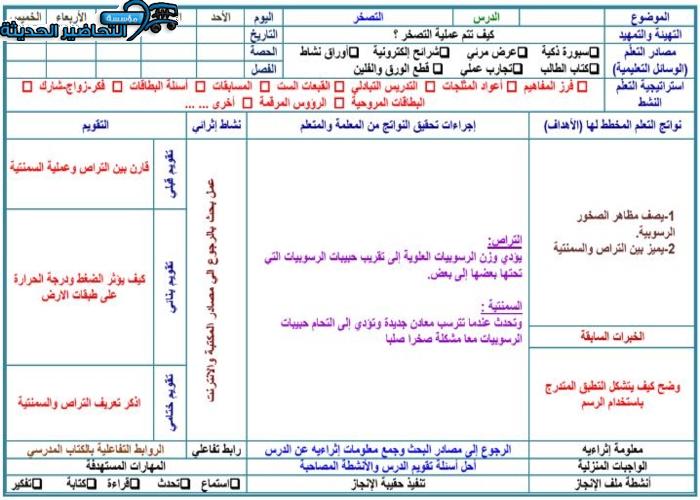 الموضوع
الدرس
التصخر
اليوم
الأحد
الأربعاء
الخميس
مؤسسة
التحاضير الحديثة
التهيئة والتمهيد
كيف تتم عملية التصخر ؟
التاريخ
مصادر التعلم
(الوسائل التعليمية)
□سبورة ذكية □عرض مرئي □شرائح إلكترونية □أوراق نشاط
□كتاب الطالب □تجارب عملي □ قطع الورق والفلين
الحصة
الفصل
استراتيجية التعلم
النشط
□ فرز المفاهيم □ أعواد المثلجات □ التدريس التبادلي □ القبعات الست □ المسابقات □ أسئلة البطاقات □ فكر-زواج-شارك
□ البطاقات المروحية □ الرؤوس المرقمة □ أخرى ... ...
نواتج التعلم المخطط لها (الأهداف)
إجراءات تحقيق النواتج من المعلمة والمتعلم
نشاط إثرائي
التقويم
1-يصف مظاهر الصخور
الرسوبية.
2-يميز بين التراص والسمنتية
الخبرات السابقة
وضح كيف يتشكل التطبق المتدرج
باستخدام الرسم
التراص:
يؤدي وزن الرسوبيات العلوية إلى تقريب حبيبات الرسوبيات التي
تحتها بعضها إلى بعض.
السمنتية :
وتحدث عندما تترسب معادن جديدة وتؤدي إلى التحام حبيبات
الرسوبيات معا مشكلة صخرا صلبا
عمل بحث بالرجوع الي مصادر المكتبة والانترنت
تقويم قبلي
قارن بين التراص وعملية السمنتية
تقويم بنائي
كيف يؤثر الضغط ودرجة الحرارة
على طبقات الارض
تقويم ختامي
اذكر تعريف التراص والسمنتية
معلومة إثراءيه
الرجوع إلى مصادر البحث وجمع معلومات إثراءيه عن الدرس
رابط تفاعلي
الروابط التفاعلية بالكتاب المدرسي
الواجبات المنزلية
أحل أسئلة تقويم الدرس والأنشطة المصاحبة
المهارات المستهدفة
أنشطة ملف الإنجاز
تنفيذ حقيبة الإنجاز
□استماع □تحدث □قراءة □كتابة □تفكير